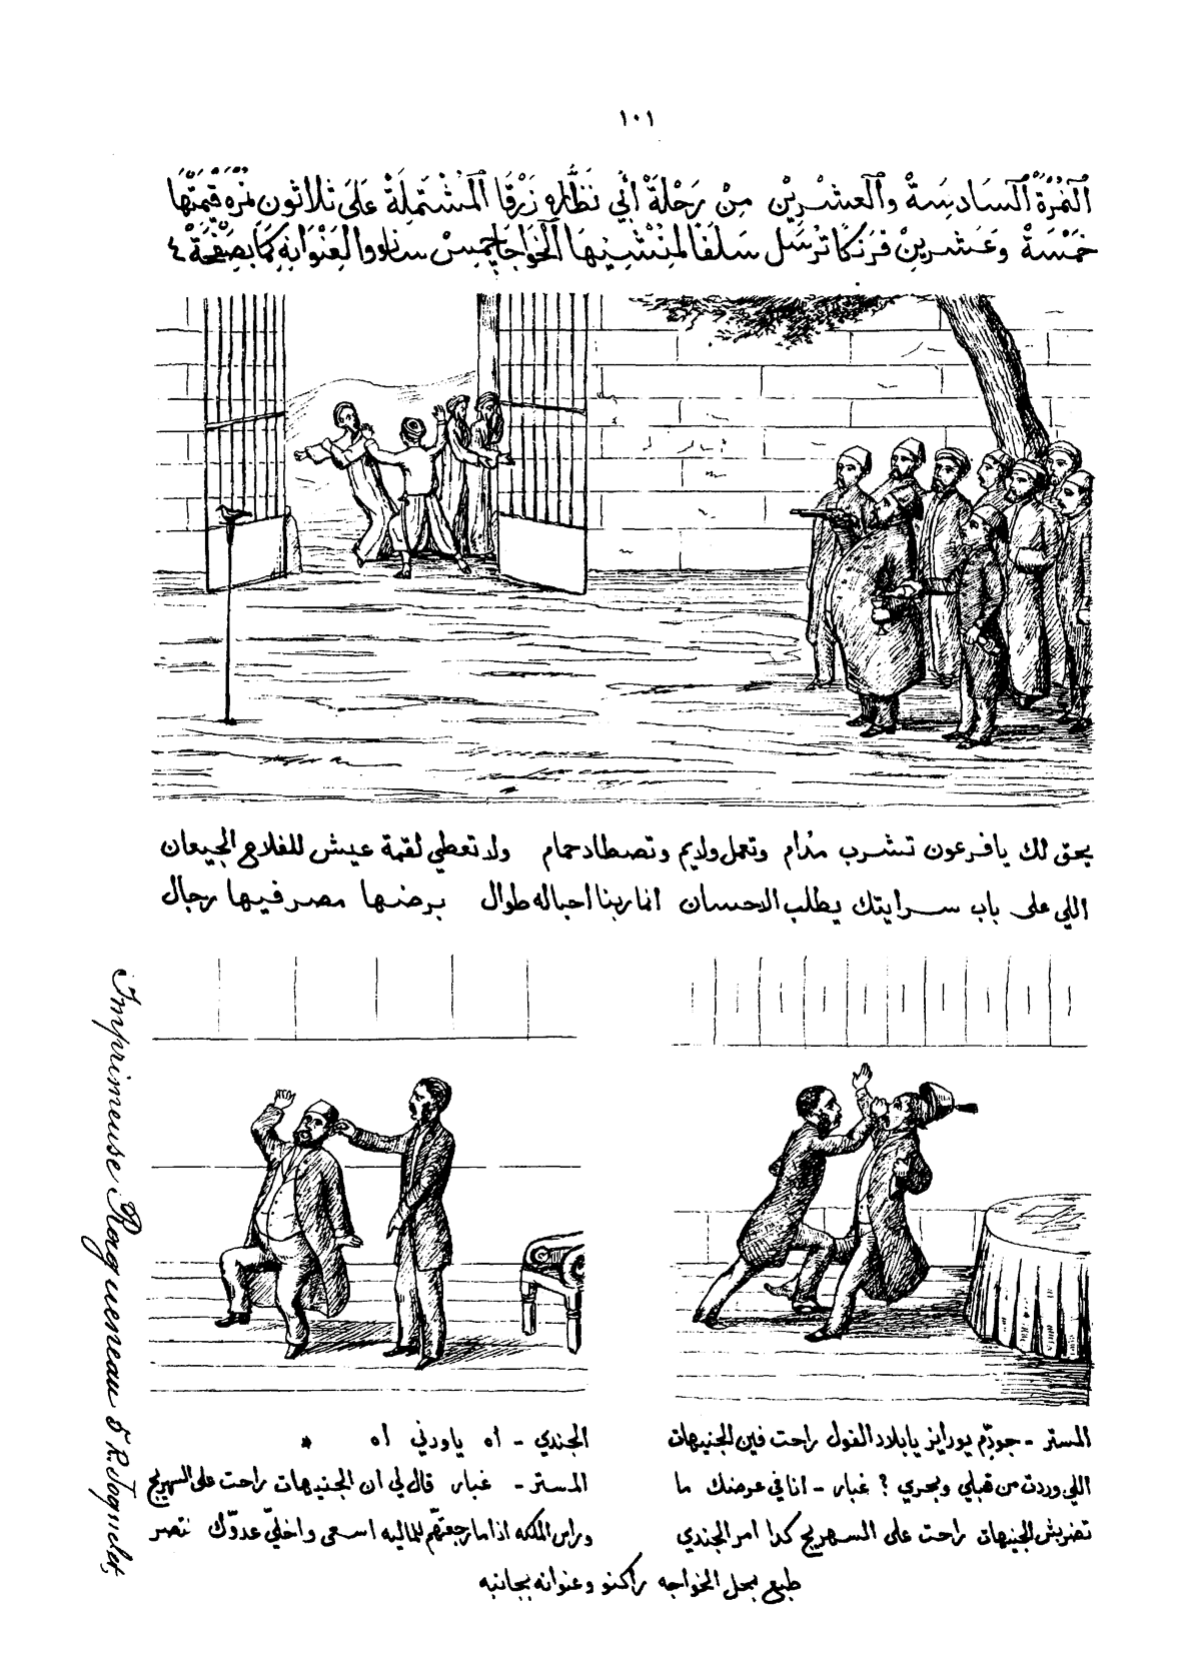 ١٠١
اَلنُمْرَةْ اَلسَادِسَةْ والعِشْرِيْن مِنْ رَحْلَةْ أَبِي نَظَّارَه زَرْقَا اَلمُشْتَمِلَةْ عَلَى ثلاثون نمره قِيمَتْهَا
خَمْسَةْ وَعَشرِينْ فرَنكًا تُرْسَل سَلَفًا لِمُنْشِيْهَا اَلخَوَاجَا جِمِسْ سانووا لعِنْوَانِهِ كمَا بصَفْحَةْ ٤
يحق لك يا فرعون تشرب مدام وتعمل ولايم وتصطاد حمام ولا تعطي لقمة عيش للفلاح الجيعان
اللي على باب سرايتك يطلب الاحسان انما ربنا احباله طوال برضها مصر فيها رجال
المستر - جودّم يورايز يا بلاد الفول راحت فين الجنيهات
اللي وردت من قبلي وبحري ؟ غبار - انا في عرضك ما
تضربش الجنيهات راحت على السهريج كدا امر الجندي
الجندي - اه يا ودني اه *
المستر - غبار قال لي ان الجنيهات راحت على السهريج
وراس الملكه اذا ما رجعتهم للماليه اسعى واخلي عدوّك ينتصر
طبع بمحل الخواجه راكنو وعنوانه بجانبه
Imprimeuse Ragueneau 5 R. Joquelet